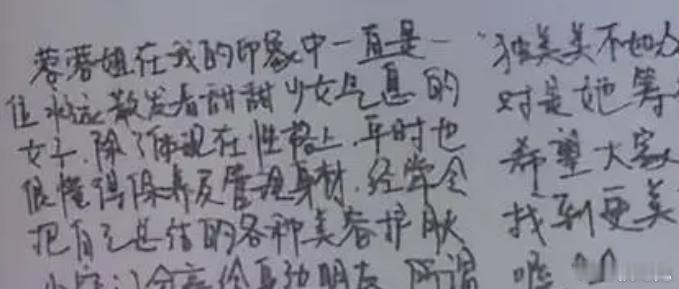 蓉蓉姐在我的印象中一直是一
位永远散发着甜甜少女气息的
女子,除了体现在性格上,平时也
很懂得保养及管理身材,经常会
把自己总结的各种美容护肤
小窍门分享给身边朋友,所谓
“独美美不如众
对是她等
希望大家
找到更美
喔